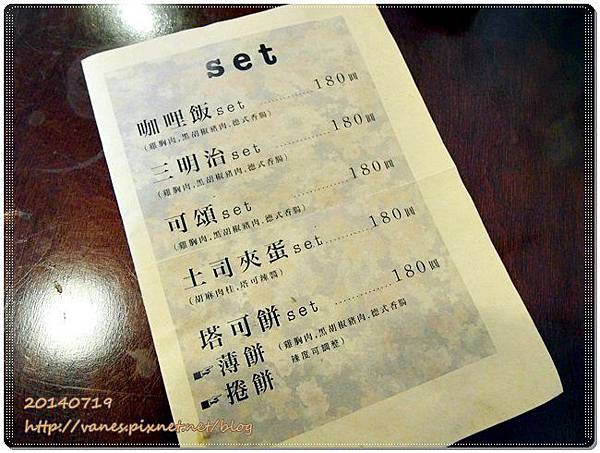 set
咖哩飯set............180圓
(雞胸肉,黑胡椒豬肉.德式香腸)
三明治set............180圓
(雞胸肉,黑胡椒豬肉.德式香腸)
可頌set............180圓
(雞胸肉,黑胡椒豬肉.德式香腸)
土司夾蛋set............180圓
(胡麻肉桂.塔可辣醬)
塔可餅set............180圓
☛薄餅 (雞胸肉,黑胡椒豬肉.德式香腸
☛捲餅 辣度可調整)
20140719
http://vanes.pixnet.net/blog